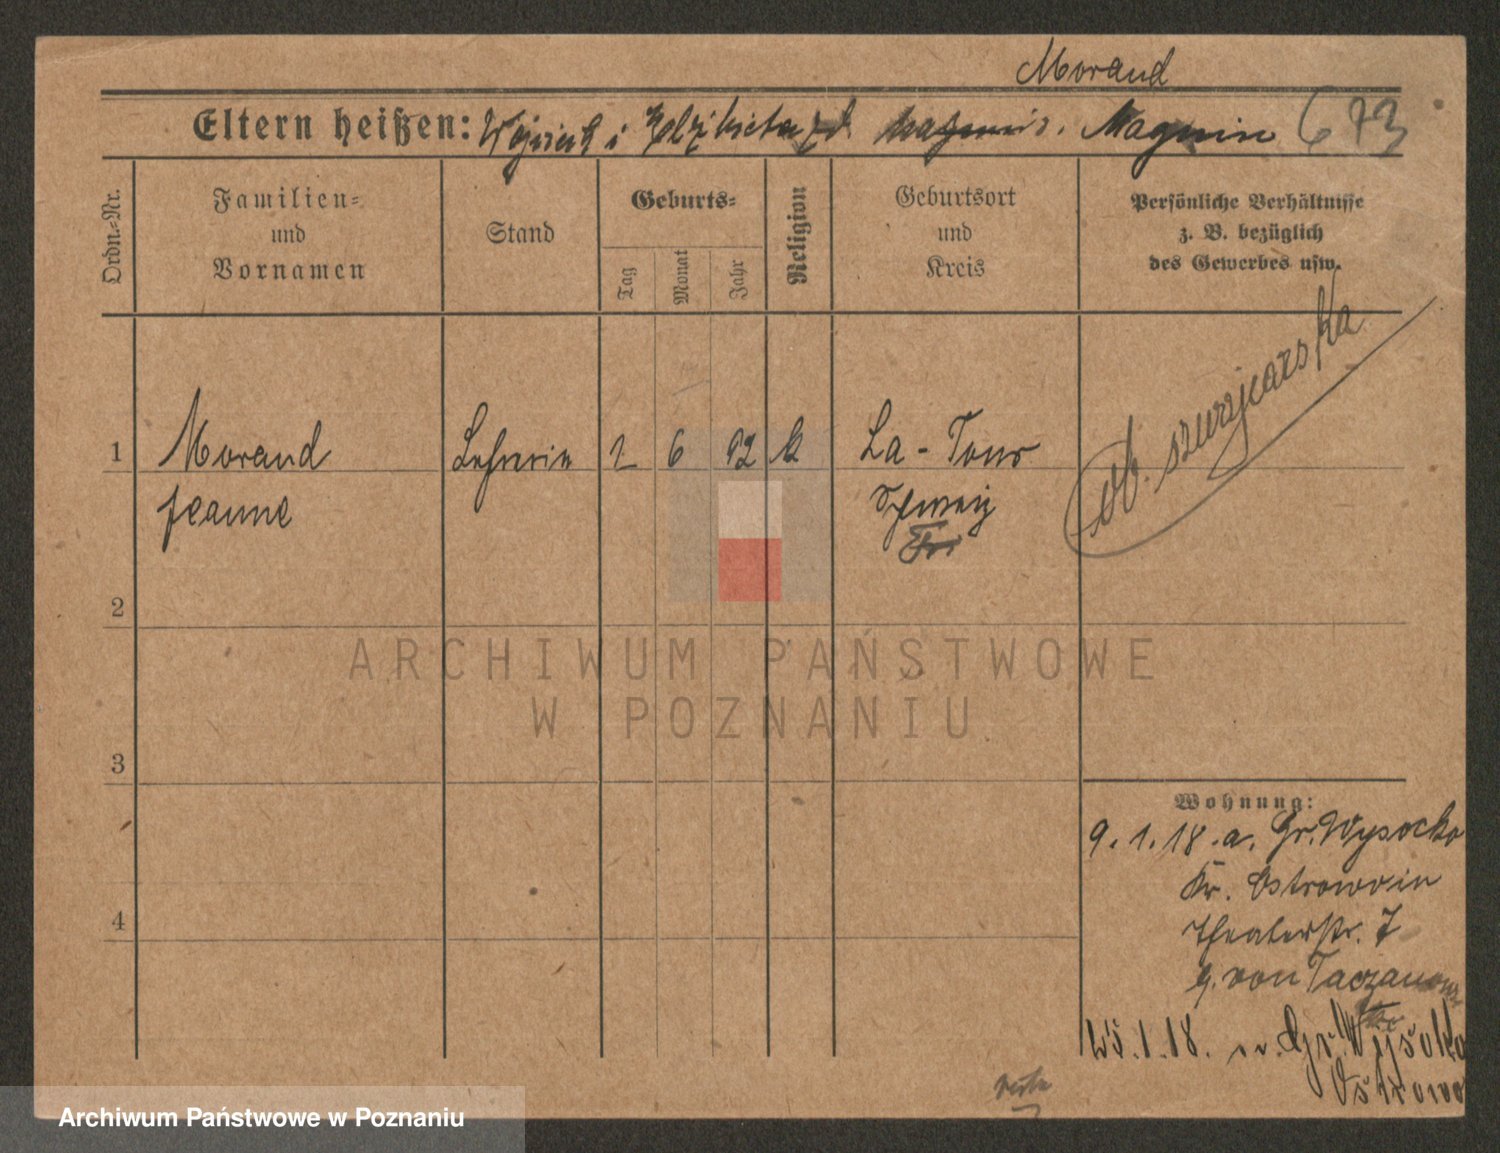 Morand
Eltern heißen: Wojciech i Elżbieta zd. Magnin 673
Ordn.-Nr.
Familien-
und
Vornamen
Stand
Geburts-
Tag
Monat
Jahr
Religion
Geburtsort
und
Kreis
Persönliche Verhältnisse
z. B. bezüglich
des Gewerbes usw.
ob. szwajcarska
1 Morand Lehrerin 1 6 92 k La-Tour
Jeanne Schweiz
2
3
4
Wohnung:
9.1.18. a. Gr. Wysocko
Kr. Ostrowo in
Theaterstr. 7
b. von Taczanow
.1.18. n. Gr. Wysocko
Ostrowo
ARCHIWUM PAŃSTWOWE
W POZNANIU
Archiwum Państwowe w Poznaniu